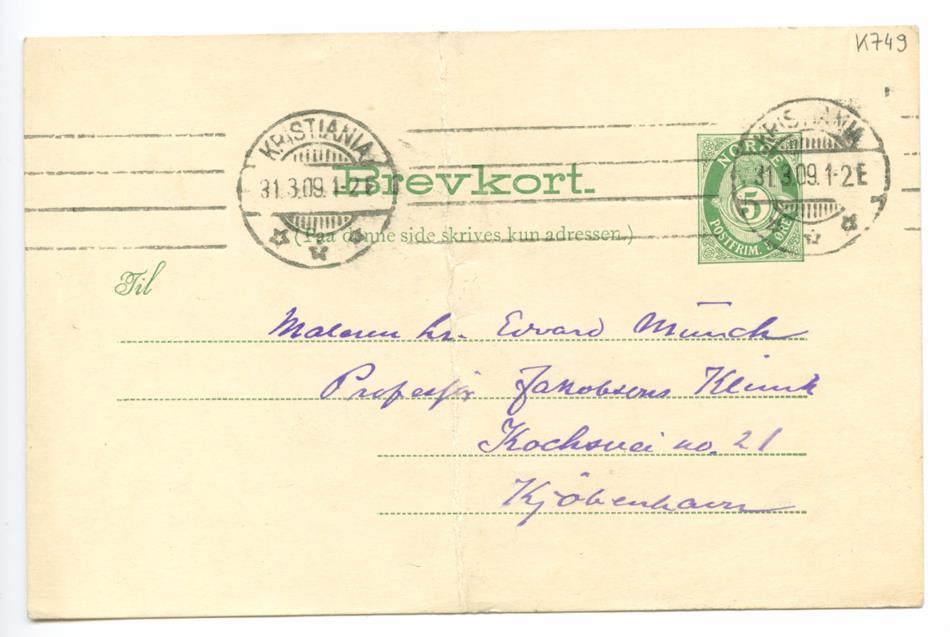 K749
KRISTIANIA
31.3.09.1-2E
KRISTIANIA
31.3.09.1-2E
Brevkort.
NORGE
5
POSTFRIM. 5 ØRE
(Paa denne side skrives kun adressen.)
Til
Maleren hr. Edvard Münch
Professor Jakobsens Klinik
Kochsvei no. 21
Kjöbenhavn